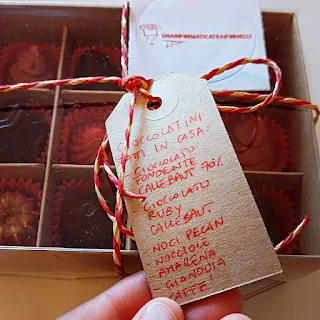 UNAINFORMATICATRAIFORNELLI
CIOCCOLATINI
FATTI IN CASA:
- CIOCCOLATO
FONDENTE
CALLEBAUT 70%
- CIOCCOLATO
RUBY
CALLEBAUT
- NOCI PECAN
NOCCIOLE
AMARENA
- GIANDUIA
CAFFE'